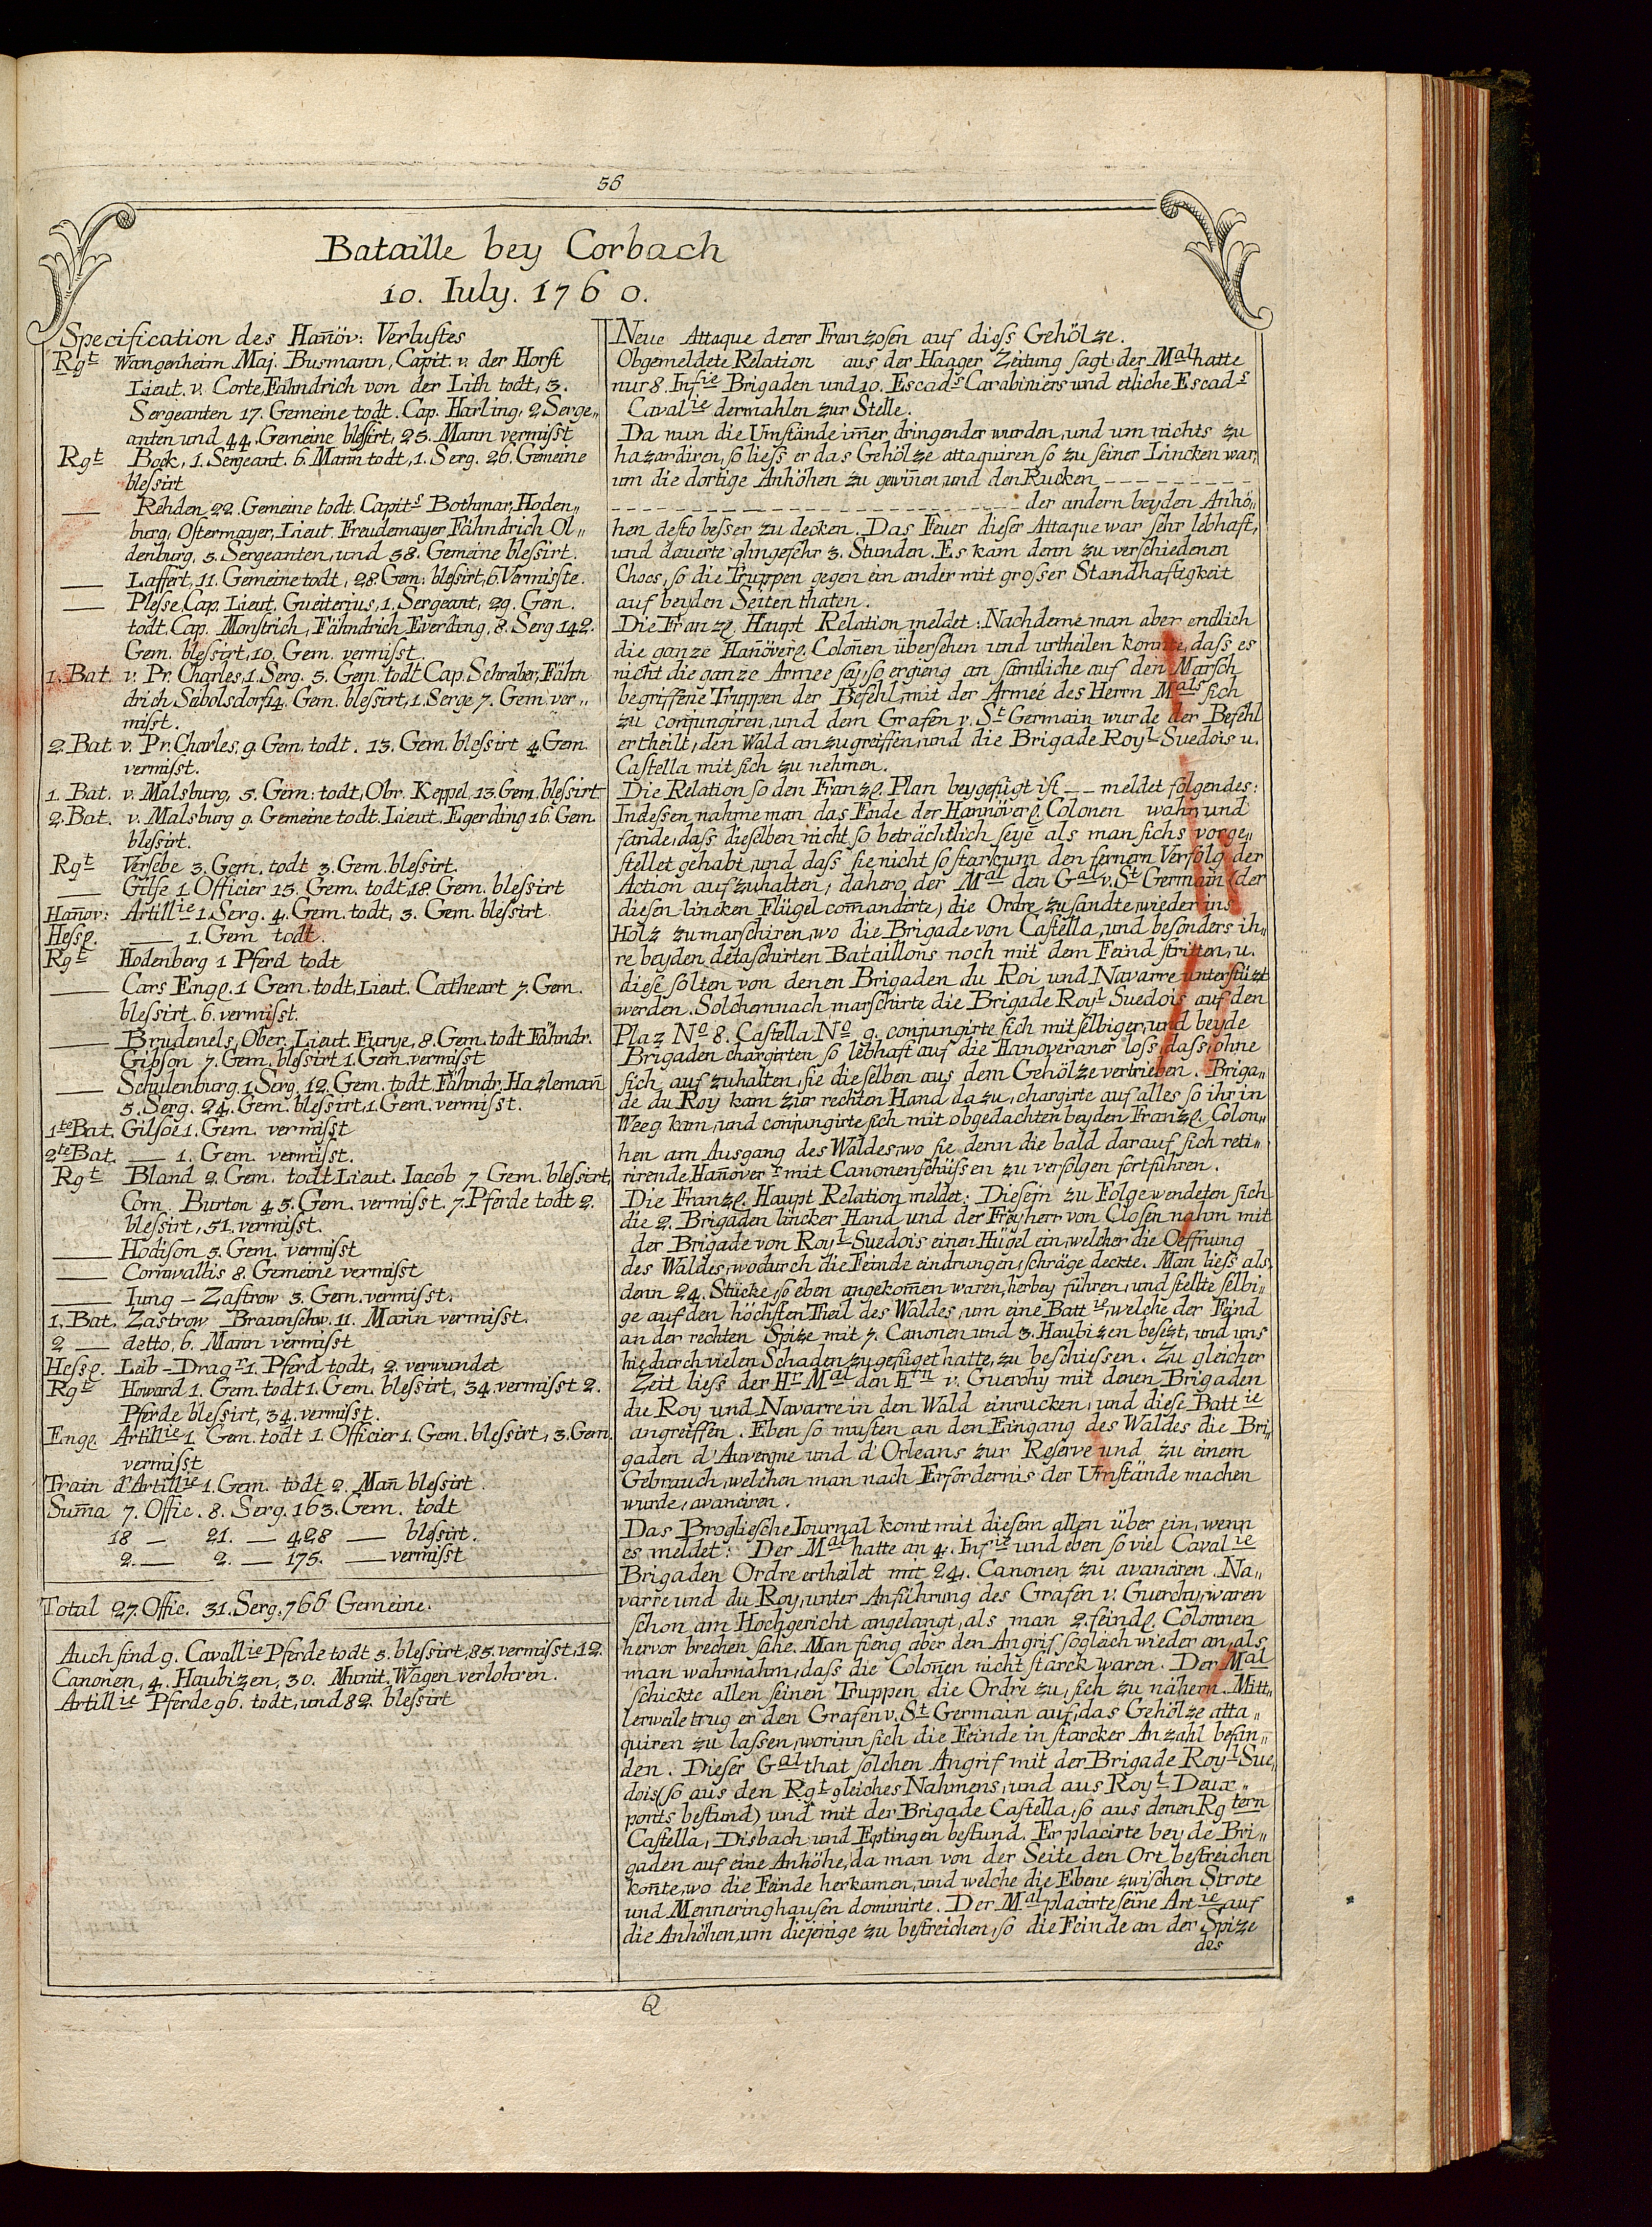 56
Bataille bey Corbach
10. Iuly. 1760.
Specification des Han̄öv: Verluſtes
Rgt Wangenheim Maj. Busmann, Capit. v. der Horſt
Lieut. v. Corte, Fähndrich von der Lith todt, 3.
Sergeanten 17. Gemeine todt. Cap. Harling, 2 Serge„
anten und 44. Gemeine bleſsirt, 25. Mann vermiſst
Rgt Bock, 1. Sergeant. 6. Mann todt, 1. Serg. 26. Gemeine
bleſsirt
— Rehden 22. Gemeine todt. Capits Bothmar, Hoden„
burg, Oſtermayer, Lieut. Freudemayer Fähndrich Ol„
denburg, 5. Sergeanten, und 58. Gemeine bleſsirt.
— Laffert, 11. Gemeine todt, 28. Gem: bleſsirt, 6. Vermiſste.
— Pleſse, Cap. Lieut. Gueiterius, 1. Sergeant, 29. Gem.
todt. Cap. Monſtrich, Fähndrich Everding, 8. Serg 142.
Gem. bleſsirt, 10. Gem. vermiſst.
1. Bat. v. Pr. Charles, 1. Serg. 5. Gem. todt Cap. Schreiber, Fähn
drich Sebolsdorf 14. Gem. bleſsirt, 1. Serge 7. Gem. ver„
miſst.
2. Bat. v. Pr. Charles, 9. Gem. todt. 13. Gem. bleſsirt 4. Gem.
vermiſst.
1. Bat. v. Malsburg, 5. Gem: todt, Obr. Keppel, 13. Gem. bleſsirt
2. Bat. v. Malsburg 9. Gemeine todt. Lieut. Egerding 16. Gem.
bleſsirt.
Rgt Verſebe 3. Gem. todt 3. Gem. bleſsirt.
— Gilſe 1. Officier 15. Gem. todt, 18. Gem. bleſsirt
Han̄ov: Artillie 1. Serg. 4. Gem. todt, 3. Gem. bleſsirt
Heſsl. — 1. Gem todt.
Rgt Hodenberg 1 Pferd todt
— Cars Engl. 1 Gem. todt, Lieut. Catheart 7. Gem.
bleſsirt. 6. vermiſst.
— Brudenels, Ober. Lieut. Furye, 8. Gem. todt Fähndr.
Gibson 7. Gem. bleſsirt 1. Gem. vermiſst
— Schulenburg, 1. Serg. 12. Gem. todt Fähndr. Hazleman̄
5. Serg. 24. Gem. bleſsirt, 1. Gem. vermiſst.
1te Bat. Gilsoe 1. Gem. vermiſst
2te Bat. — 1. Gem. vermiſst.
Rgt Bland 2. Gem. todt Lieut. Iacob 7. Gem. bleſsirt,
Corn. Burton 45. Gem. vermiſst. 7. Pferde todt 2.
bleſsirt, 51. vermiſst.
— Hodison 5. Gem. vermiſst
— Cornwallis 8. Gemeine vermiſst
— Iung – Zaſtrow 3. Gem. vermiſst.
1. Bat. Zastrow Braunſchw. 11. Mann vermiſst.
2 — detto, 6. Mann vermiſst
Heſsl. Leib – Dragr 1. Pferd todt, 2. verwundet
Rgt Howard 1. Gem. todt 1. Gem. bleſsirt, 34. vermiſst 2.
Pferde bleſsirt, 34. vermiſst.
Engl. Artillie 1. Gem. todt 1. Officier 1. Gem. bleſsirt, 3. Gem.
vermiſst
Train d'Artillie 1. Gem. todt 2. Man̄ bleſsirt.
Sum̄a 7. Offic. 8. Serg. 163. Gem. todt
18 — 21. — 428 — bleſsirt.
2. — 2. — 175. — vermiſst
Total 27. Offic. 31. Serg. 766 Gemeine.
Auch ſind 9. Cavallie Pferde todt 3. bleſsirt, 85. vermiſst, 12.
Canonen, 4. Haubizen, 30. Munit. Wägen verlohren.
Artillie Pferde 96. todt, und 82 bleſsirt
Neue Attaque derer Franzoſen auf dieſs Gehölze.
Obgemeldete Relation aus der Haager Zeitung ſagt: der Mal hatte
nur 8. Infie Brigaden und 10. Escads Carabiniers und etliche Escads
Cavalie dermahlen zur Stelle.
Da nun die Umſtände im̄er dringender wurden, und um nichts zu
hazardiren, ſo lieſs er das Gehölze attaquiren ſo zu ſeiner Lincken war,
um die dortige Anhöhen zu gewin̄en, und den Rucken – – – – – – – –
– – – – – – – – – – – – – – – – – – – – der andern beyden Anhö„
hen deſto beſser zu decken. Das Feuer dieſer Attaque war ſehr lebhaft,
und dauerte ohngefehr 3. Stunden. Es kam denn zu verſchiedenen
Chocs, ſo die Truppen gegen ein ander mit groſser Standhaftigkeit
auf beyden Seiten thaten.
Die Franzl. Haupt Relation meldet: Nachdeme man aber endlich
die ganze Han̄överl. Colon̄en überſehen und urtheilen konnte, daſs es
nicht die ganze Armee ſey, ſo ergieng an ſämtliche auf den Marſch
begriffene Truppen der Befehl, mit der Armeé des Herrn Mals ſich
zu conjungiren, und dem Grafen v. St Germain wurde der Befehl
ertheilt, den Wald anzugreiffen, und die Brigade Royl Suedois u.
Caſtella mit ſich zu nehmen.
Die Relation ſo den Franzl. Plan beygefügt iſt – – meldet folgendes:
Indeſsen nahme man das Ende der Hannöverl. Colonen wahr, und
fande, daſs dieſelben nicht ſo beträchtlich ſeye als man ſichs vorge„
ſtellet gehabt, und daſs ſie nicht ſo ſtark, um den fernern Verfolg der
Action aufzuhalten, dahero der Mal den Gal v. St Germain (der
dieſen lincken Flügel com̄andirte) die Ordre zuſandte, wieder ins
Holz zumarſchiren, wo die Brigade von Caſtella, und beſonders ih„
re beyden detaſchirten Bataillons noch mit dem Feind ſtritten, u.
dieſe ſolten von denen Brigaden du Roi und Navarre unterſtüzt
werden. Solchemnach marſchirte die Brigade Royl Suedois auf den
Plaz No 8. Caſtella No 9. conjungirte ſich mit ſelbiger, und beyde
Brigaden chargirten ſo lebhaft auf die Hanoveraner loſs, daſs, ohne
ſich aufzuhalten, ſie dieſelben aus dem Gehölze vertrieben. Briga„
de du Roy kam zur rechten Hand dazu, chargirte auf alles ſo ihr in
Weeg kam, und conjungirte ſich mit obgedachten beyden Franzl. Colon„
hen am Ausgang des Waldes, wo ſie denn die bald darauf ſich reti„
rirende Han̄overr mit Canonenſchüſsen zu verfolgen fortfuhren.
Die Franzl. Haupt Relation meldet: Dieſem zu Folge wendeten ſich
die 2. Brigaden lincker Hand und der Freyherr von Closen nahm mit
der Brigade von Royl Suedois einen Hügel ein, welcher die Oeffnung
des Waldes, wodurch die Feinde eindrungen, ſchräge deckte. Man lieſs als„
denn 24. Stücke, ſo eben angekom̄en waren, herbey führen, und ſtellte ſelbi„
ge auf den höchſten Theil des Waldes, um eine Battie, welche der Feind
an der rechten Spize mit 7. Canonen und 3. Haubizen beſezt, und uns
hiedurch vielen Schaden zugefüget hatte, zu beſchieſsen. Zu gleicher
Zeit lieſs der Hr Mal den Hrn v. Guerchy mit denen Brigaden
du Roy und Navarre in den Wald einrucken, und dieſe Battie
angreiffen. Eben ſo muſten an den Eingang des Waldes die Bri„
gaden d'Auvergne und d'Orleans zur Reſerve und zu einem
Gebrauch, welchen man nach Erfordernis der Umſtände machen
wurde, avanciren.
Das Broglieſche Iournal komt mit dieſem allen über ein, wenn
es meldet: Der Mal hatte an 4. Infie und eben ſo viel Cavalie
Brigaden Ordre ertheilet mit 24. Canonen zu avanciren. Na„
varre und du Roy, unter Anführung des Grafen v. Guerchy, waren
ſchon am Hochgericht angelangt, als man 2. feindl. Colonnen
hervor brechen ſahe. Man fieng aber den Angrif ſogleich wieder an, als
man wahrnahm, daſs die Colon̄en nicht ſtarck waren. Der Mal
ſchickte allen ſeinen Truppen die Ordre zu, ſich zu nähern. Mitt„
lerweile trug er den Grafen v. St Germain auf, das Gehölze atta„
quiren zu laſsen, worinn ſich die Feinde in ſtarcker Anzahl befan„
den. Dieſer Gal that ſolchen Angrif mit der Brigade Royl Sue„
dois (ſo aus den Rgt gleiches Nahmens, und aus Royl Deux„
ponts beſtund) und mit der Brigade Caſtella, ſo aus denen Rgtern
Caſtella, Disbach und Eptingen beſtund. Er placirte beyde Bri„
gaden auf eine Anhöhe, da man von der Seite den Ort beſtreichen
kon̄te, wo die Feinde herkamen, und welche die Ebene zwiſchen Strote
und Menneringhauſen dominirte. Der Mal placirte ſeine Artie auf
die Anhöhen, um diejenige zu beſtreichen, ſo die Feinde an der Spize
des
Q